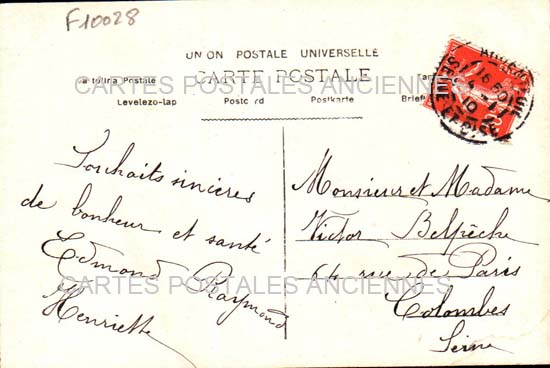 F10028
UNION POSTALE UNIVERSELLE
CARTE POSTALE
Cartolina Postale
Levelezo-lap
Postcard
Postkarte
CARTES POSTALES ANCIENNES
Souhaits sincères
de bonheur et santé
Edmond Raymond
Henriette
Monsieur et Madame
Victor Belpêche
64 rue de Paris
Colombes
Seine
CARTES POSTALES ANCIENNES
SEINE